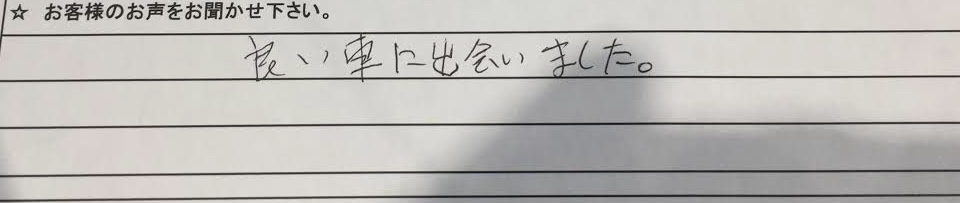 ☆ お客様のお声をお聞かせ下さい。
良い車に出会いました。